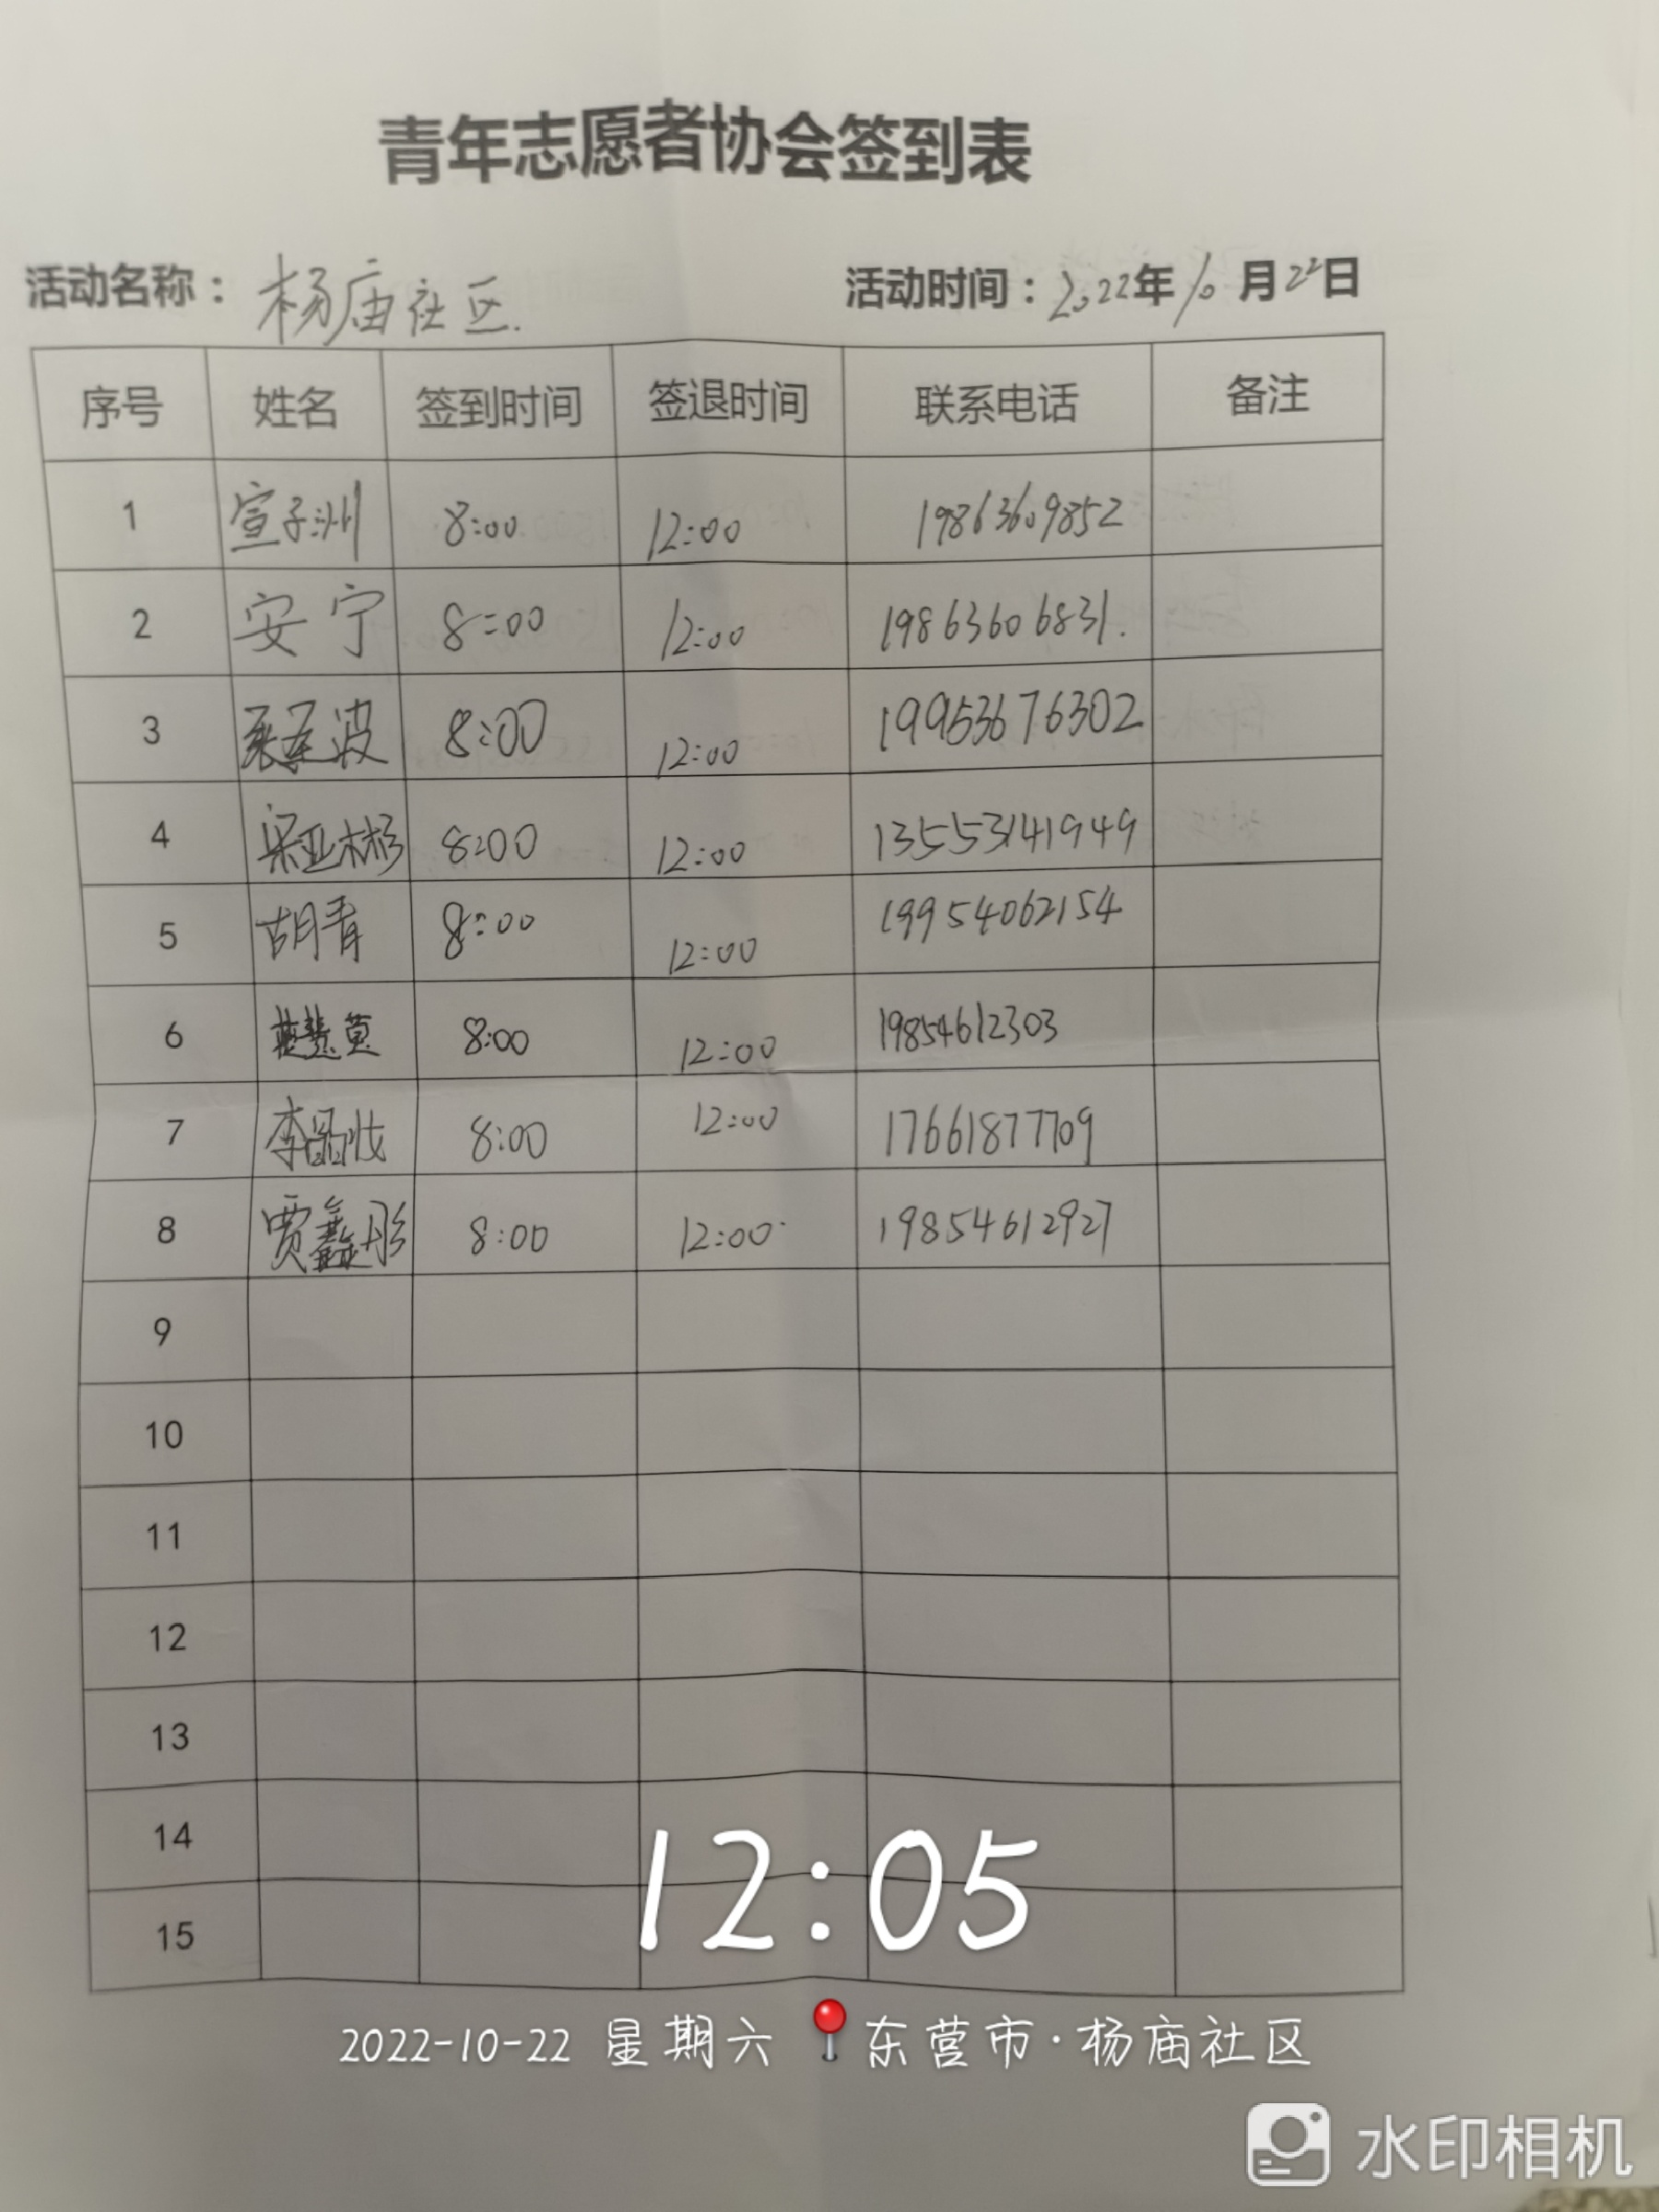 青年志愿者协会签到表
活动名称：杨庙社区. 活动时间：2022年10月22日
序号 姓名 签到时间 签退时间 联系电话 备注
1 宣子洲 8:00 12:00 19863609852
2 安宁 8:00 12:00 19863606831.
3 8:00 12:00 19953676302
4 梁亚彬 8:00 12:00 13553141949
5 胡青 8:00 12:00 19954062154
6 8:00 12:00 19854612303
7 李晶 8:00 12:00 17661877709
8 贾鑫彤 8:00 12:00 19854612927
9
10
11
12
13
14
15
12:05
2022-10-22 星期六 东营市·杨庙社区
水印相机